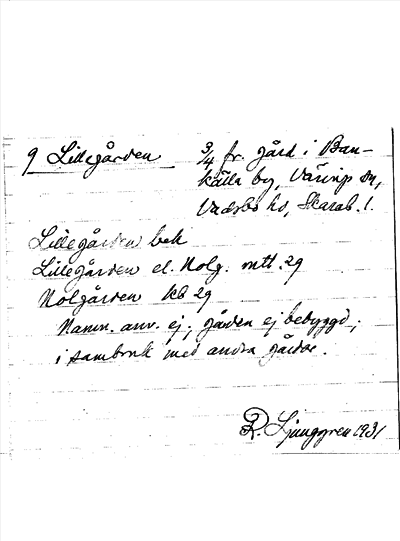 9 Lillegården
3/4 fr. gård i Ban-
källa by, Väring sn,
Vadsbo hd, Skarab. l.
Lillegården bek
Lillegården el. Nolg. mtl. 29
Nolgården kb 29
Namn. anv. ej; gården ej bebyggd;
i sambruk med andra gårdar.
R. Ljunggren 1931